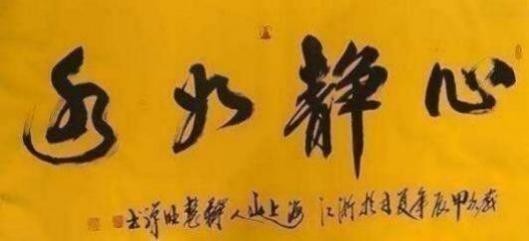 心静如水
岁次甲辰年夏月於浙江 海上山人释慧书